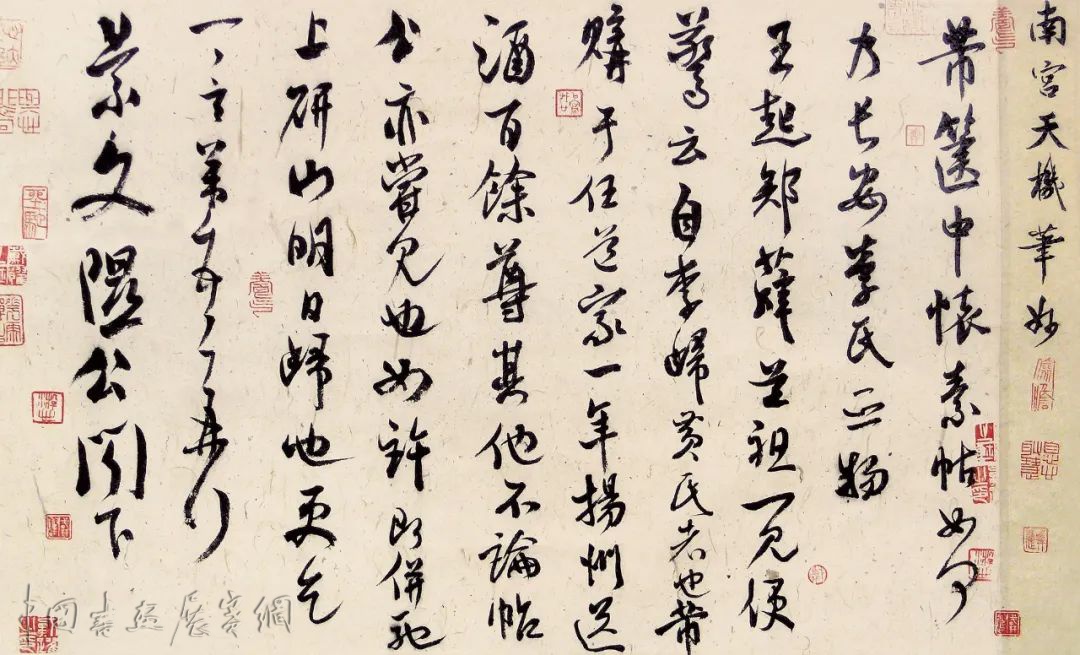 南宮天機筆妙
芾篋中懷素帖如何
乃長安李氏之物
王起郎薛道祖一見便
驚云自李歸黃氏者也芾
購于任道家一年揚州送
酒百餘尊其他不論帖
公亦嘗見也如許即併馳
上研山明日歸也更乞
一言芾頓首再拜
景文隰公閤下
中國書法展賽網